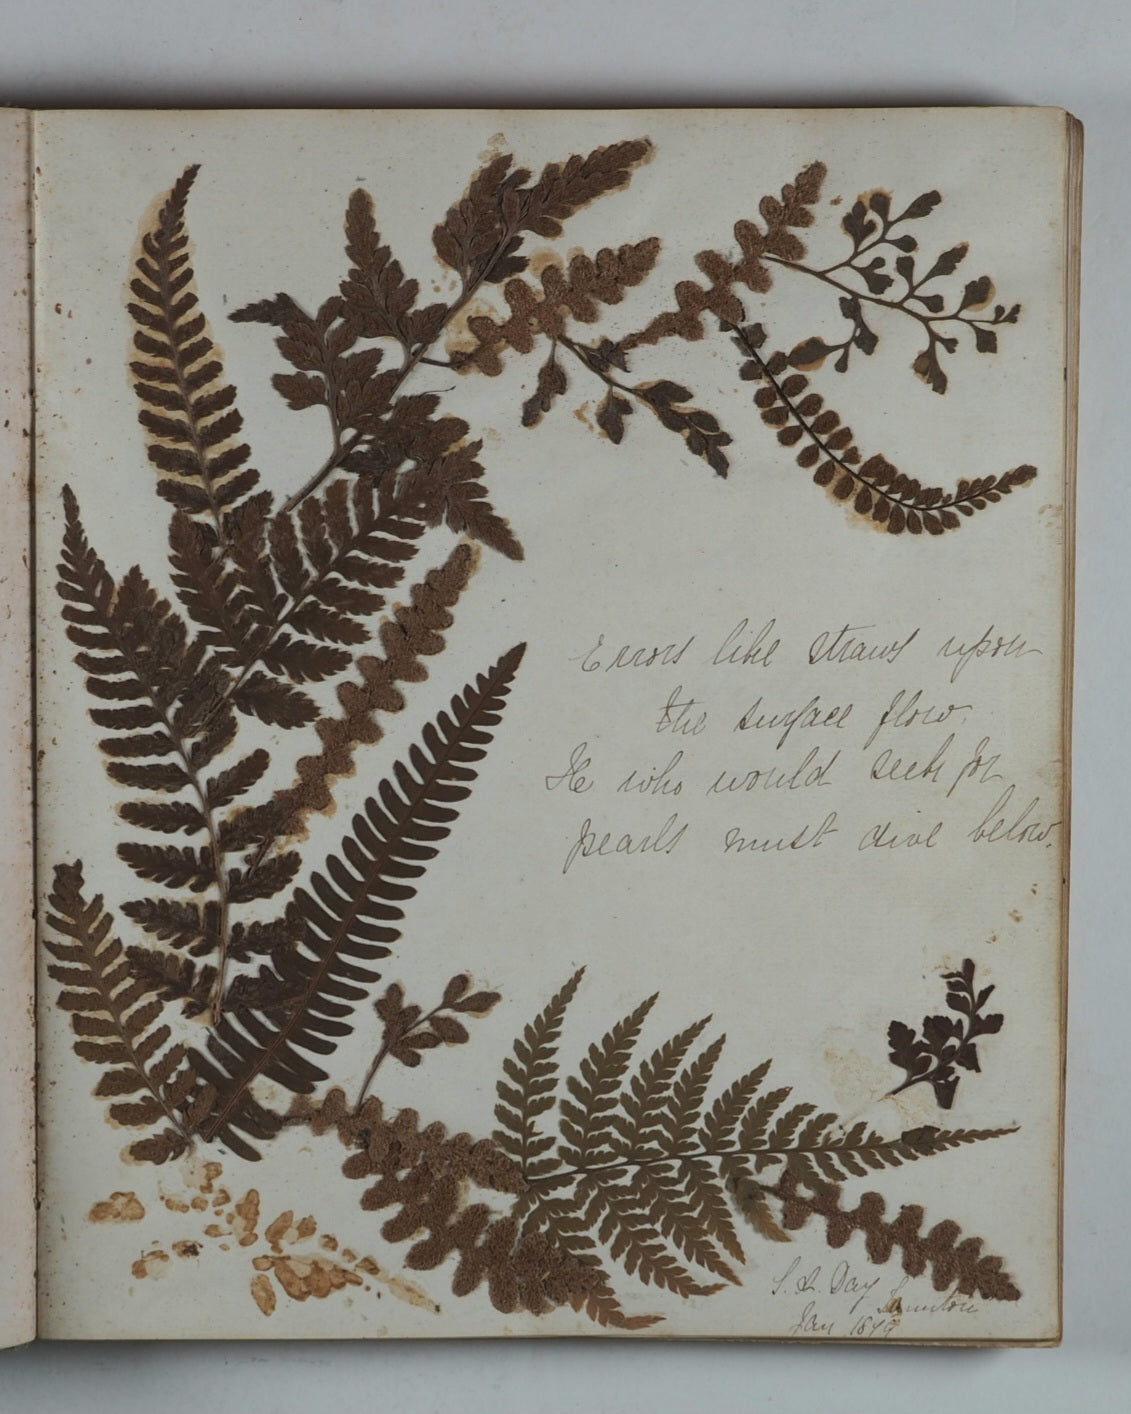 Errors like straws upon
the surface flow.
He who would seek for
pearls must dive below.
S. L. Day
Taunton
Jan 1879